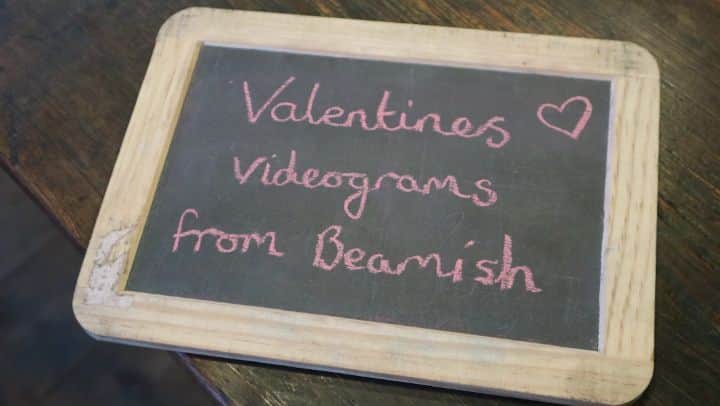 Valentines
videograms
from Beamish